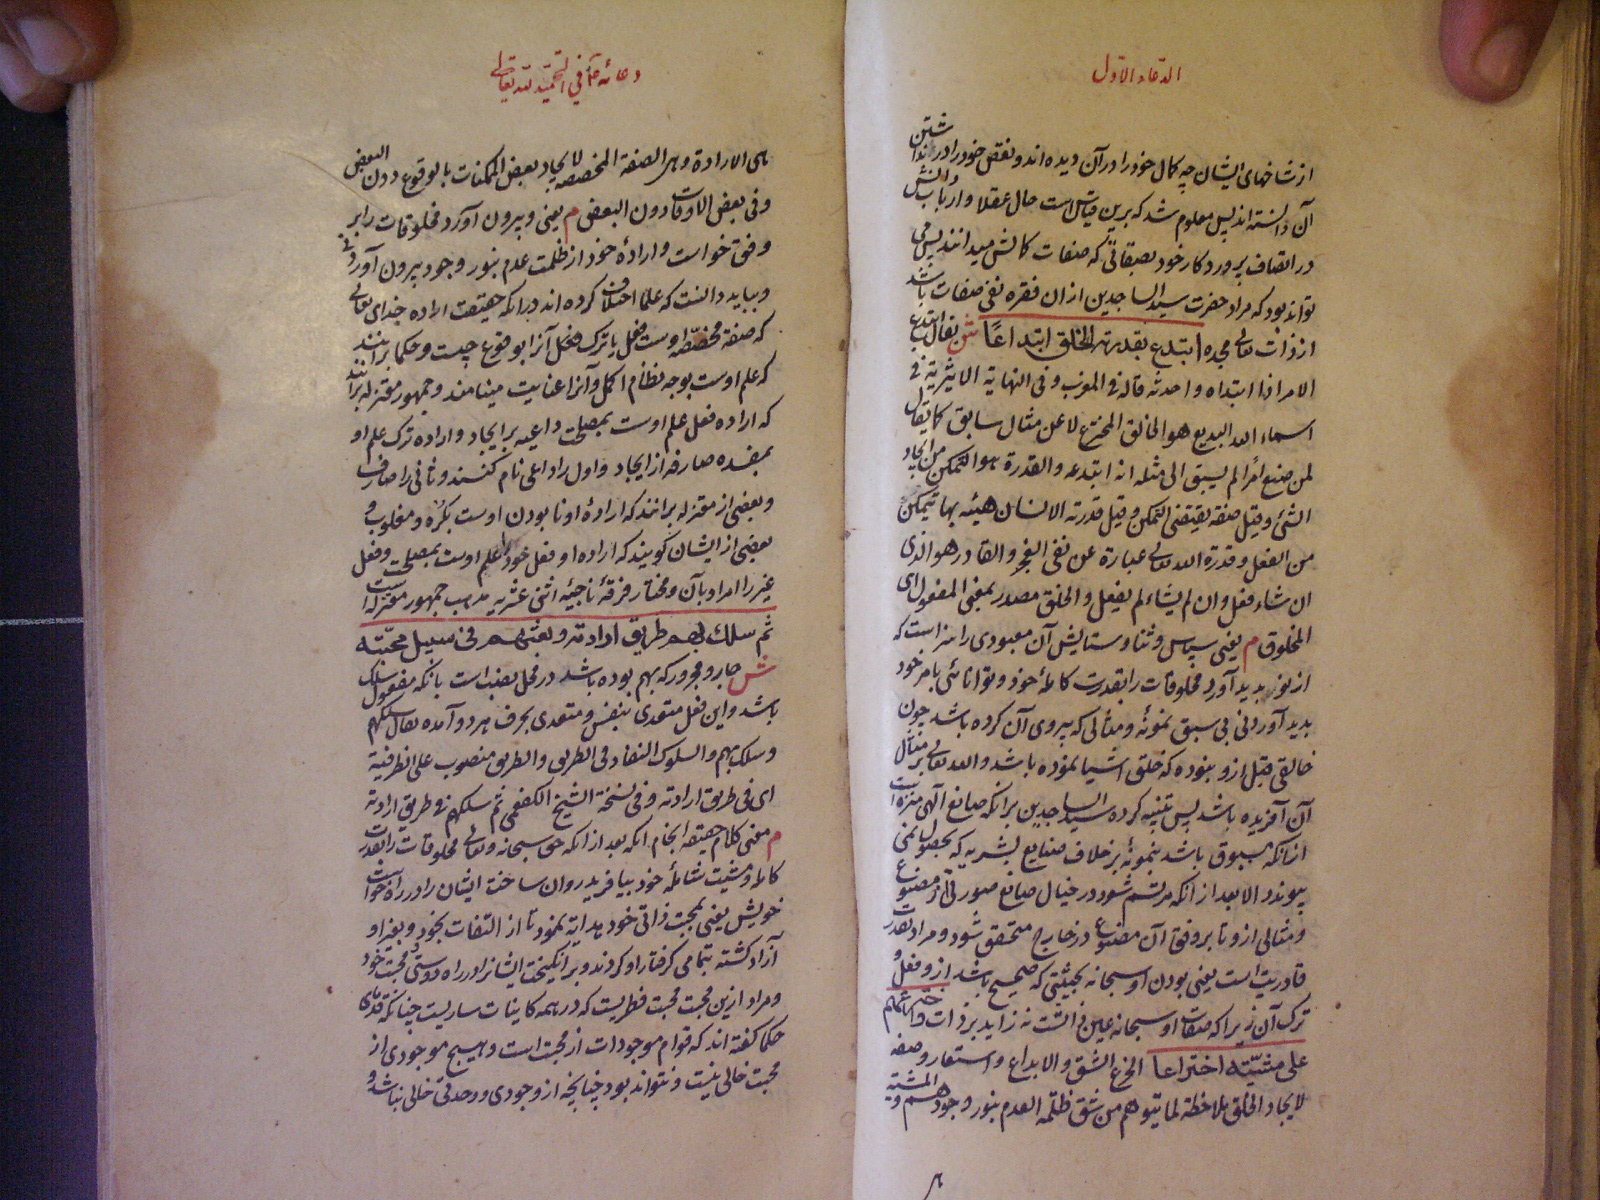 الدعاء الاول
از شاخهای ایشان چه کمال خود را در آن دیده اند و نقص خود را در نداشتن
آن دانسته اند پس معلوم شد که برین قیاس است حال عقلا و ارباب دانش
در اتصاف پروردگار خود بصفاتی که صفات کمالش میدانند پس می
تواند بود که مراد حضرت سید الساجدین از ان فقره نفی صفات باشد
از ذات تعالی مجده ابتدع بقدرته الخلق ابتداعًا ش یقال ابتدع
الامر اذا ابتداه و احدثه قاله فی المغرب و فی النهایة الاثیریة فی
اسماء الله البدیع هو الخالق المخترع لا عن مثال سابق کما یقال
لمن صنع امرا لم یسبق الی مثله انه ابتدعه و القدرة هو التمکن من ایجاد
الشئ و قیل صفة یقتضی التمکن و قیل قدرته الانسان هیئه بها یتمکن
من الفعل و قدرة الله تعالی عبارة عن نفی العجز و القادر هو الذی
ان شاء فعل و ان لم یشاء لم یفعل و الخلق مصدر بمعنی المفعول ای
المخلوق م یعنی سپاس و ثنا و ستایش آن معبودی را سزاست که
از نو پدید آورد مخلوقات را بقدرت کامله خود و توانائی بامر خود
پدید آوردنی بی سبق نمونه و مثالی که پیروی آن کرده باشد چون
خالقی قبل ازو نبوده که خلق اشیا نموده باشد و الله تعالی بر مثال
آن آفریده باشد پس تنبیه کرده سید الساجدین برانکه صانع الهی منزه است
ازانکه مسبوق باشد بنمونه بر خلاف صنایع بشریه که بحصول نمی
پیوندد الا بعد از آنکه مرتسم شود در خیال صانع صورتی از مصنوع
و مثالی ازو تا بر وفق آن مصنوع در خارج متحقق شود و مراد بقدرت
قادریت است یعنی بودن او سبحانه بحیثیتی که صحیح باشد ازو فعل و
ترک آن زیرا که صفات او سبحانه عین ذاتست نه زاید بر ذات و اخترعهم
علی مشیّته اختراعا الخرع الشق و الابداع و استعار وصفه
لایجاد الخلق بملاحظة لما یتوهم من شق ظلمة العدم بنور وجودهم و المشیة
دعائه ع فی التحمید لله تعالی
هی الارادة و هی الصفة المخصصه لایجاد بعض الممکنات بالوقوع دون البعض
و فی بعض الاوقات دون البعض م یعنی و بیرون آورد مخلوقات را بر
وفق خواست و ارادهٔ خود از ظلمت عدم بنور وجود بیرون آوردنی
و بباید دانست که علما اختلاف کرده اند در انکه حقیقت اراده خدای تعالی
که صفة مخصصه اوست فعل یا ترک فعل آنرا بوقوع چیست و حکما برانند
که علم اوست بوجه نظام اکمل و آنرا عنایت مینامند و جمهور معتزله برانند
که اراده فعل علم اوست بمصلحت داعیه بر ایجاد و اراده ترک علم او
بمفسده صارفه از ایجاد و اول را داعی نام کنند و ثانی را صارف
و بعضی از معتزله برانند که ارادهٔ او نا بودن اوست بکره و مغلوب و
بعضی از ایشان گویند که اراده او فعل خود را علم اوست بمصلحت و فعل
غیر را امر او بآن و مختار فرقهٔ ناجیهٔ اثنی عشریه مذهب جمهور معتزله است
ثم سلک بهم طریق ارادته و بعثهم فی سبیل محبّته
ش جار و مجرور که بهم بوده باشد در محل نصب است بانکه مفعول سلک
باشد و این فعل متعدی بنفس و متعدی بحرف هر دو آمده یقال سلکهم
و سلک بهم و السلوک النفاد فی الطریق و الطریق منصوب علی الظرفیة
ای فی طریق ارادته و فی نسخة الشیخ الکفعمی ثم سلکهم فی طریق ارادته
م معنی کلام حقیقه انجام انکه بعد از انکه حق سبحانه و تعالی مخلوقات را بقدرت
کامله و مشیت شامله خود بیافرید روان ساخت ایشان را در راه خواست
خویش یعنی بمحبت ذاتی خود هدایة نمود تا از التفات بخود و بغیر او
آزاد گشته بتمامی گرفتار او کردند و برانگیخت ایشانرا در راه دوستی و محبت خود
و مراد ازین محبت محبت فطریست که در همه کاینات ساریست چنانکه قدمای
حکما گفته اند که قوام موجودات از محبت است و هیچ موجودی از
محبت خالی نیست و نتواند بود چنانچه از وجودی و وحدتی خالی نباشد و